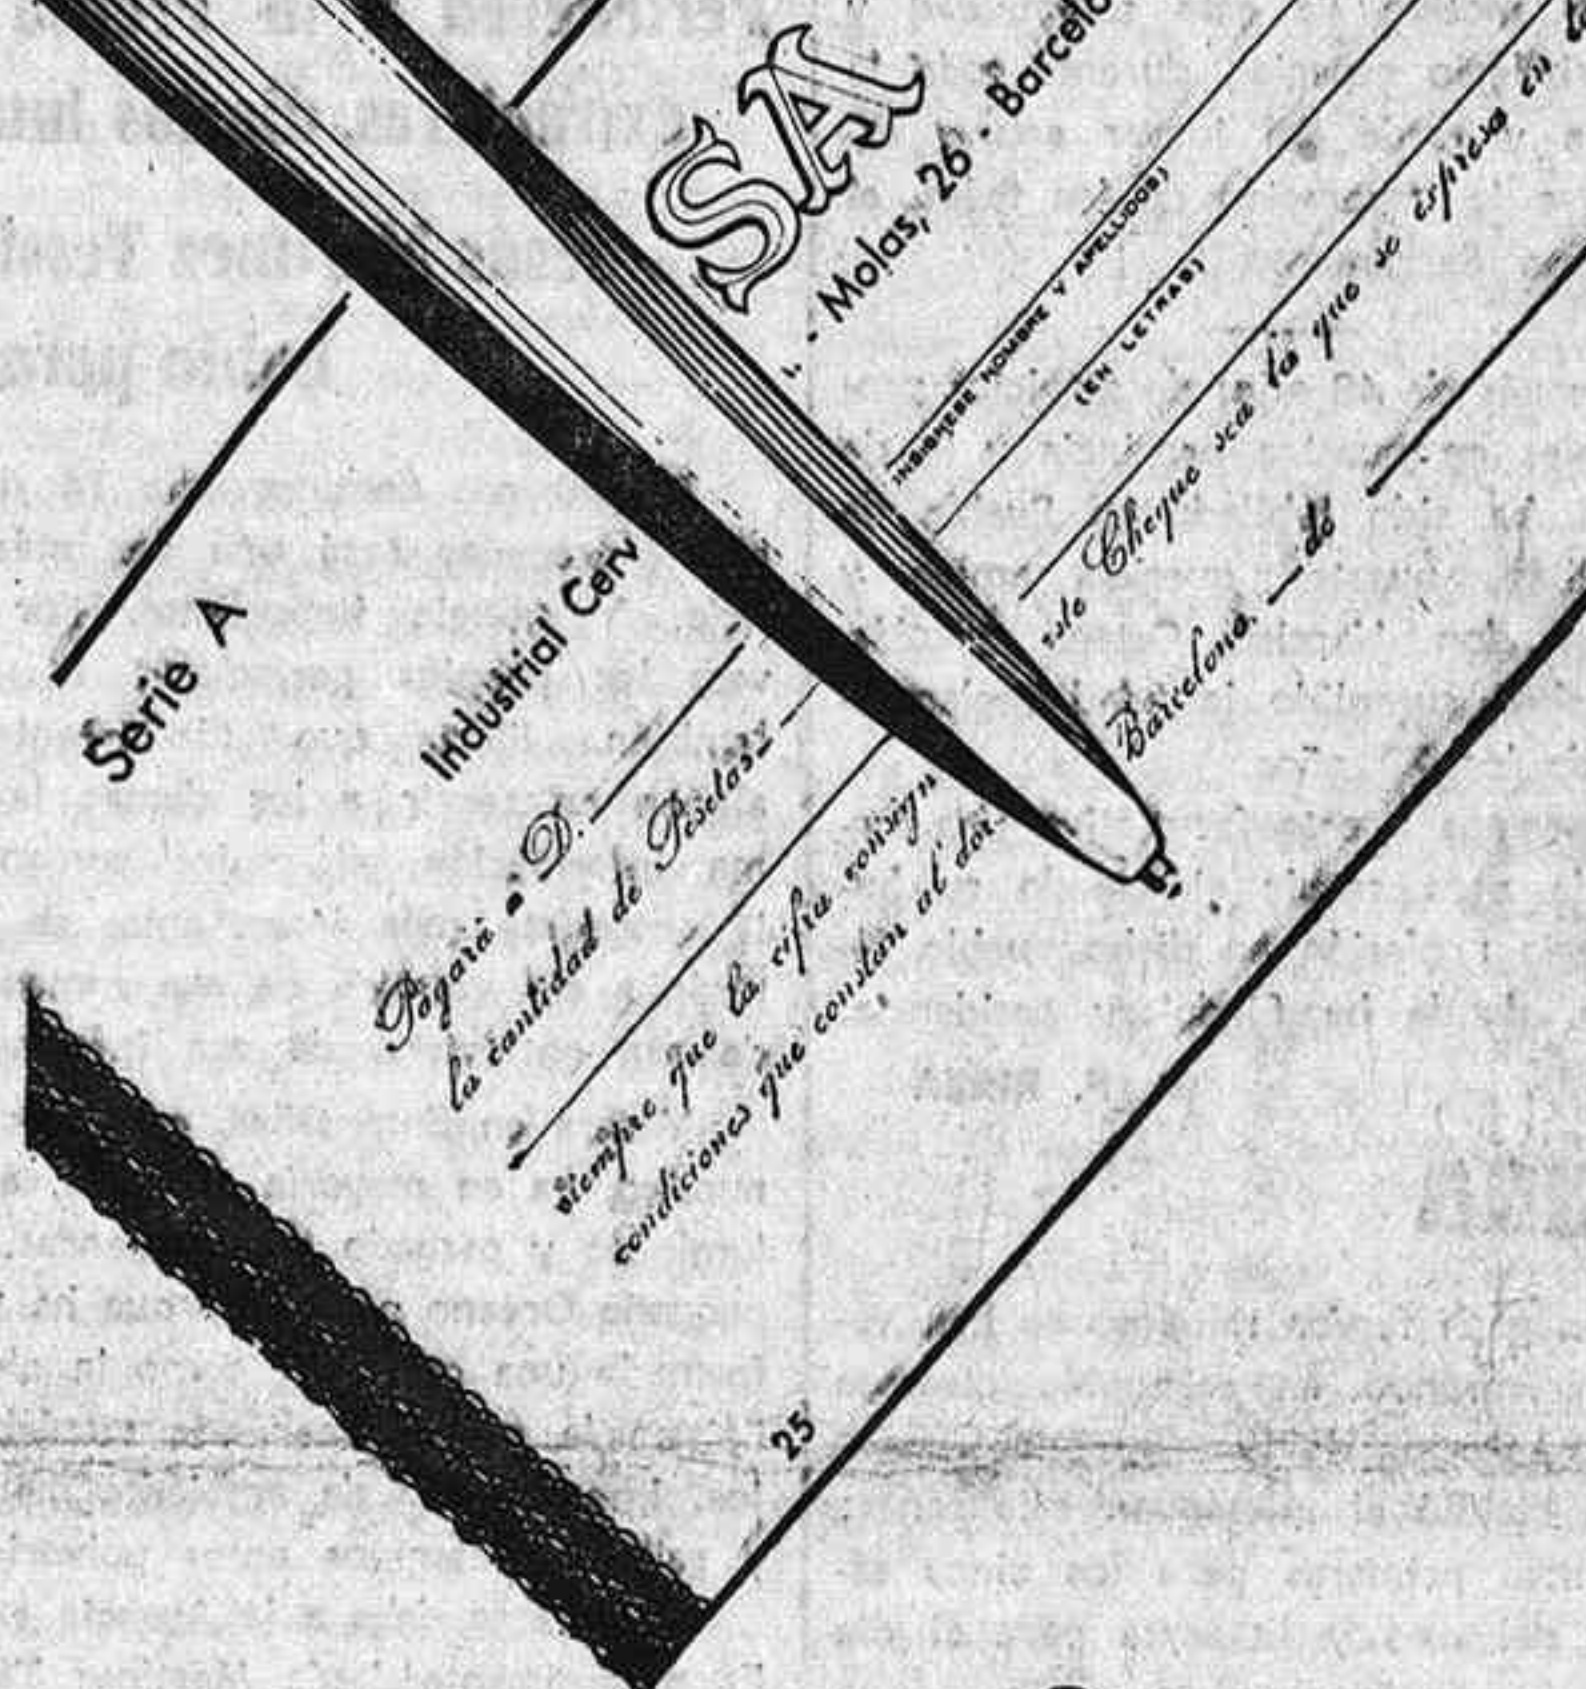 Serie A
SA
Industrial Cerv
- Molas, 26 - Barcelo
Pagará a D.
INSIGNESE NOMBRE Y APELLIDOS)
la cantidad de Pesetas
(EN LETRAS)
siempre que la cifra consign
este Cheque sea la que se expresa en
condiciones que constan al dor
Barcelona, de
25